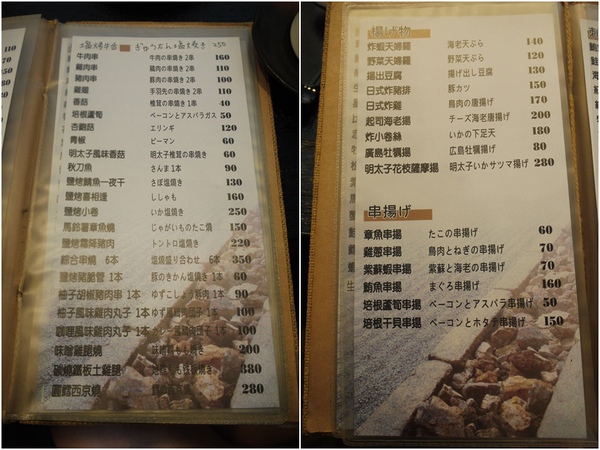 鹽烤牛舌 ぎゅうたん塩やき 250
牛肉串 牛肉の串焼き 2串 160
雞肉串 鶏肉の串焼き 2串 110
豬肉串 豚肉の串焼き 2串 100
雞翅 手羽先の串焼き 2串 110
香菇 椎茸の串焼き 1串 40
培根蘆筍 ベーコンとアスパラガス 50
杏鮑菇 エリンギ 120
青椒 ピーマン 60
明太子風味香菇 明太子椎茸の串焼き 60
秋刀魚 さんま 1本 90
鹽烤鯖魚一夜干 さば塩焼き 130
鹽烤喜相逢 ししゃも 160
鹽烤小卷 いか塩焼き 250
馬鈴薯章魚燒 じゃがいものたこ焼 150
鹽烤霜降豬肉 トントロ塩焼き 220
綜合串燒 6本 塩焼盛り合わせ 6本 350
鹽烤豬脆管 1本 豚のきかん塩焼き 1本 60
柚子胡椒豬肉串 1本 ゆずこしょう豚肉 1本 90
柚子風味雞肉丸子 1本 ゆず風 1本 100
咖哩風味雞肉丸子 1本 カレー風 1本 100
味噌雞腿燒 200
碳燒鐵板土雞腿 380
圓鱈西京燒 280
揚げ物
炸蝦天婦羅 海老天ぷら 140
野菜天婦羅 野菜天ぷら 120
揚出豆腐 揚げ出し豆腐 130
日式炸豬排 豚カツ 150
日式炸雞 鳥肉の唐揚げ 170
起司海老揚 チーズ海老唐揚げ 200
炸小卷絲 いかの下足天 180
廣島牡蠣揚 広島牡蠣揚げ 80
明太子花枝薩摩揚 明太子いかサツマ揚げ 280
串揚げ
章魚串揚 たこの串揚げ 60
雞蔥串揚 鳥肉とねぎの串揚げ 70
紫蘇蝦串揚 紫蘇と海老の串揚げ 70
鮪魚串揚 まぐろ串揚げ 160
培根蘆筍串揚 ベーコンとアスパラ串揚げ 50
培根干貝串揚 ベーコンとホタテ串揚げ 150